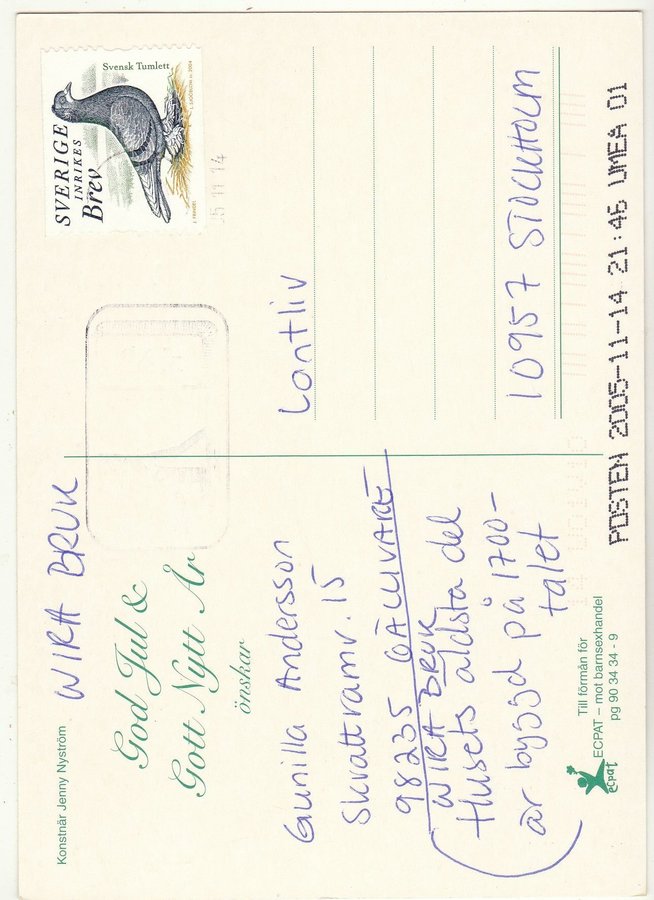 Konstnär Jenny Nyström
WIRA BRUK
God Jul &
Gott Nytt År
önskar
Gunilla Andersson
Skrattramv. 15
98235 GÄLLIVARE
WIRA BRUK
Husets äldsta del
är byggd på 1700-
talet
Till förmån för
ECPAT – mot barnsexhandel
pg 90 34 34 - 9
ecpat
SVERIGE
INRIKES
Brev
Svensk Tumlett
5 11 14
Lantliv
10957 STOCKHOLM
POSTEN 2005-11-14 21:46 UMEA 01